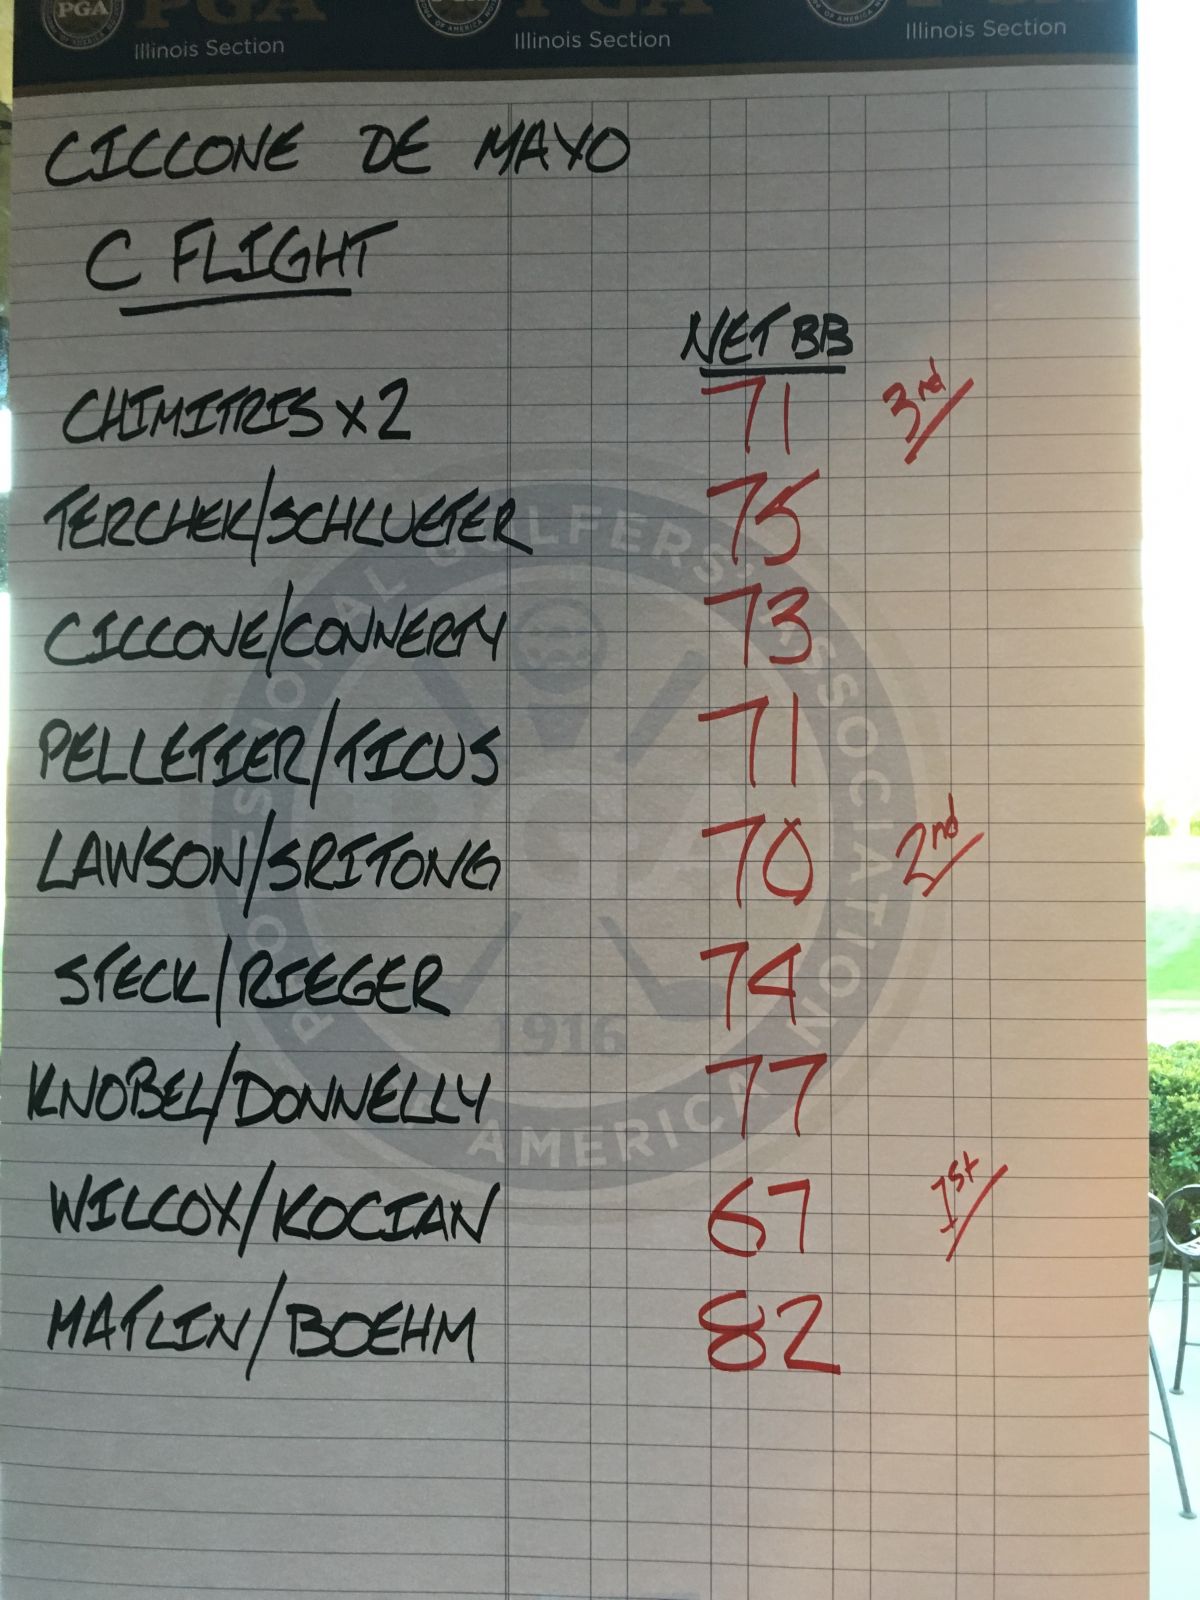 PGA PGA PGA
Illinois Section Illinois Section Illinois Section
CICCONE DE MAYO
C FLIGHT
NET BB
CHIMITRIS x 2 71 3rd
TERCHEK/SCHLUETER 75
CICCONE/CONNERTY 73
PELLETIER/TICUS 71
LAWSON/SRITONG 70 2nd
STECK/RIEGER 74
KNOBEL/DONNELLY 77
WILCOX/KOCIAN 67 1st
MATLIN/BOEHM 82
PROFESSIONAL GOLFERS' ASSOCIATION OF AMERICA
PGA
1916